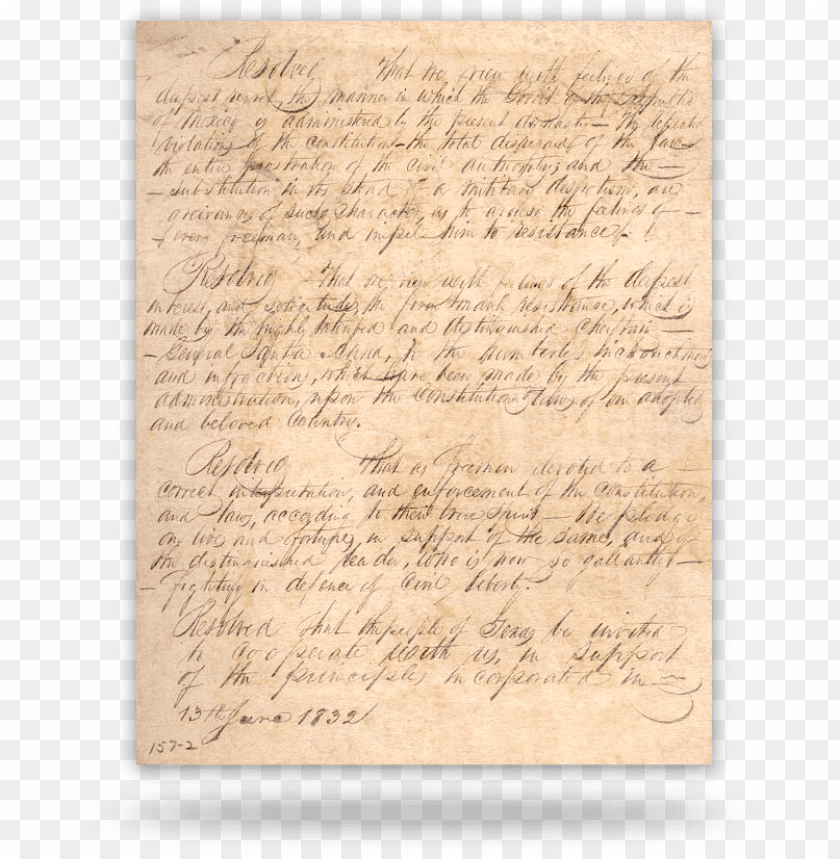 Resolved That we view with feelings of the
deepest regret, the manner in which the Gov't of the Republic
of Mexico is administered by the present dynasty— The repeated
violations of the constitution—the total disregard of the law—
the entire prostration of the civil authority; and the—
—substitution in its stead of a military despotism, are
grievances of such character, as to arouse the feelings of—
every freeman, and impel him to resistance!
Resolved That we view with feelings of the deepest
interest, and solicitude, the firm manly resistance, which is
made by the highly talented and distinguished Chieftain—
—General Santa Anna, to the numberless encroachments
and infractions, which have been made by the present
administration, upon the Constitution & laws of our adopted
and beloved Country.
Resolved That as freemen devoted to a—
correct interpretation, and enforcement of the Constitution,
and laws, according to their true Spirit— We pledge
our lives and fortunes, in support of the same, and of
the distinguished leader, who is now so gallantly—
—fighting in defence of civil liberty.
Resolved That the people of Texas be invited
to cooperate with us, in support
of the principles incorporated in—
13th June 1832
157-2